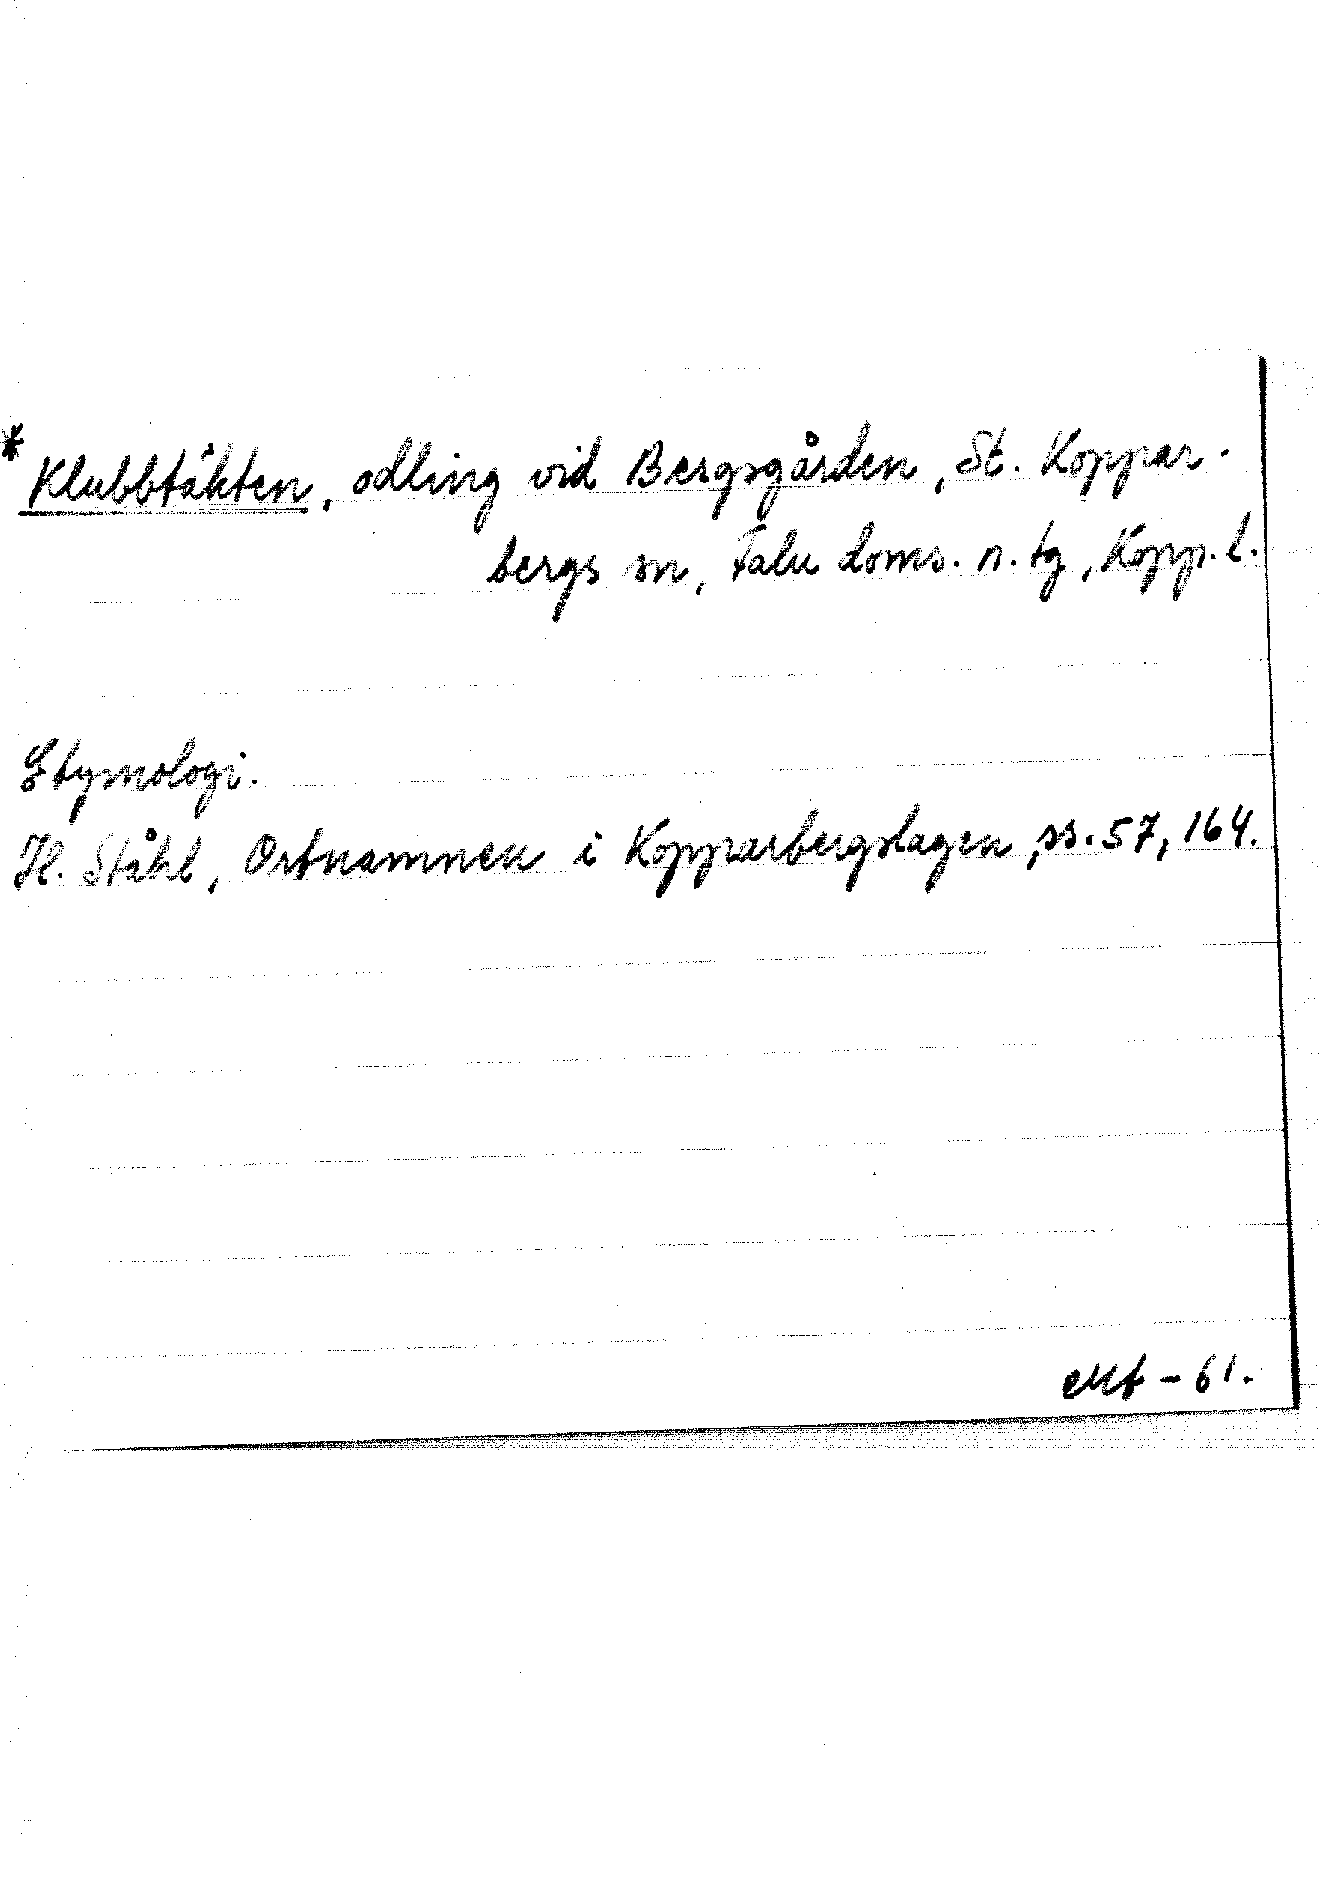 * Klubbtäkten, odling vid Bergsgården, St. Koppar-
bergs sn, Falu doms. n. tg, Kopp. l.
Etymologi.
H. Ståhl, Ortnamnen i Kopparbergslagen, ss. 57, 164.
- 61.